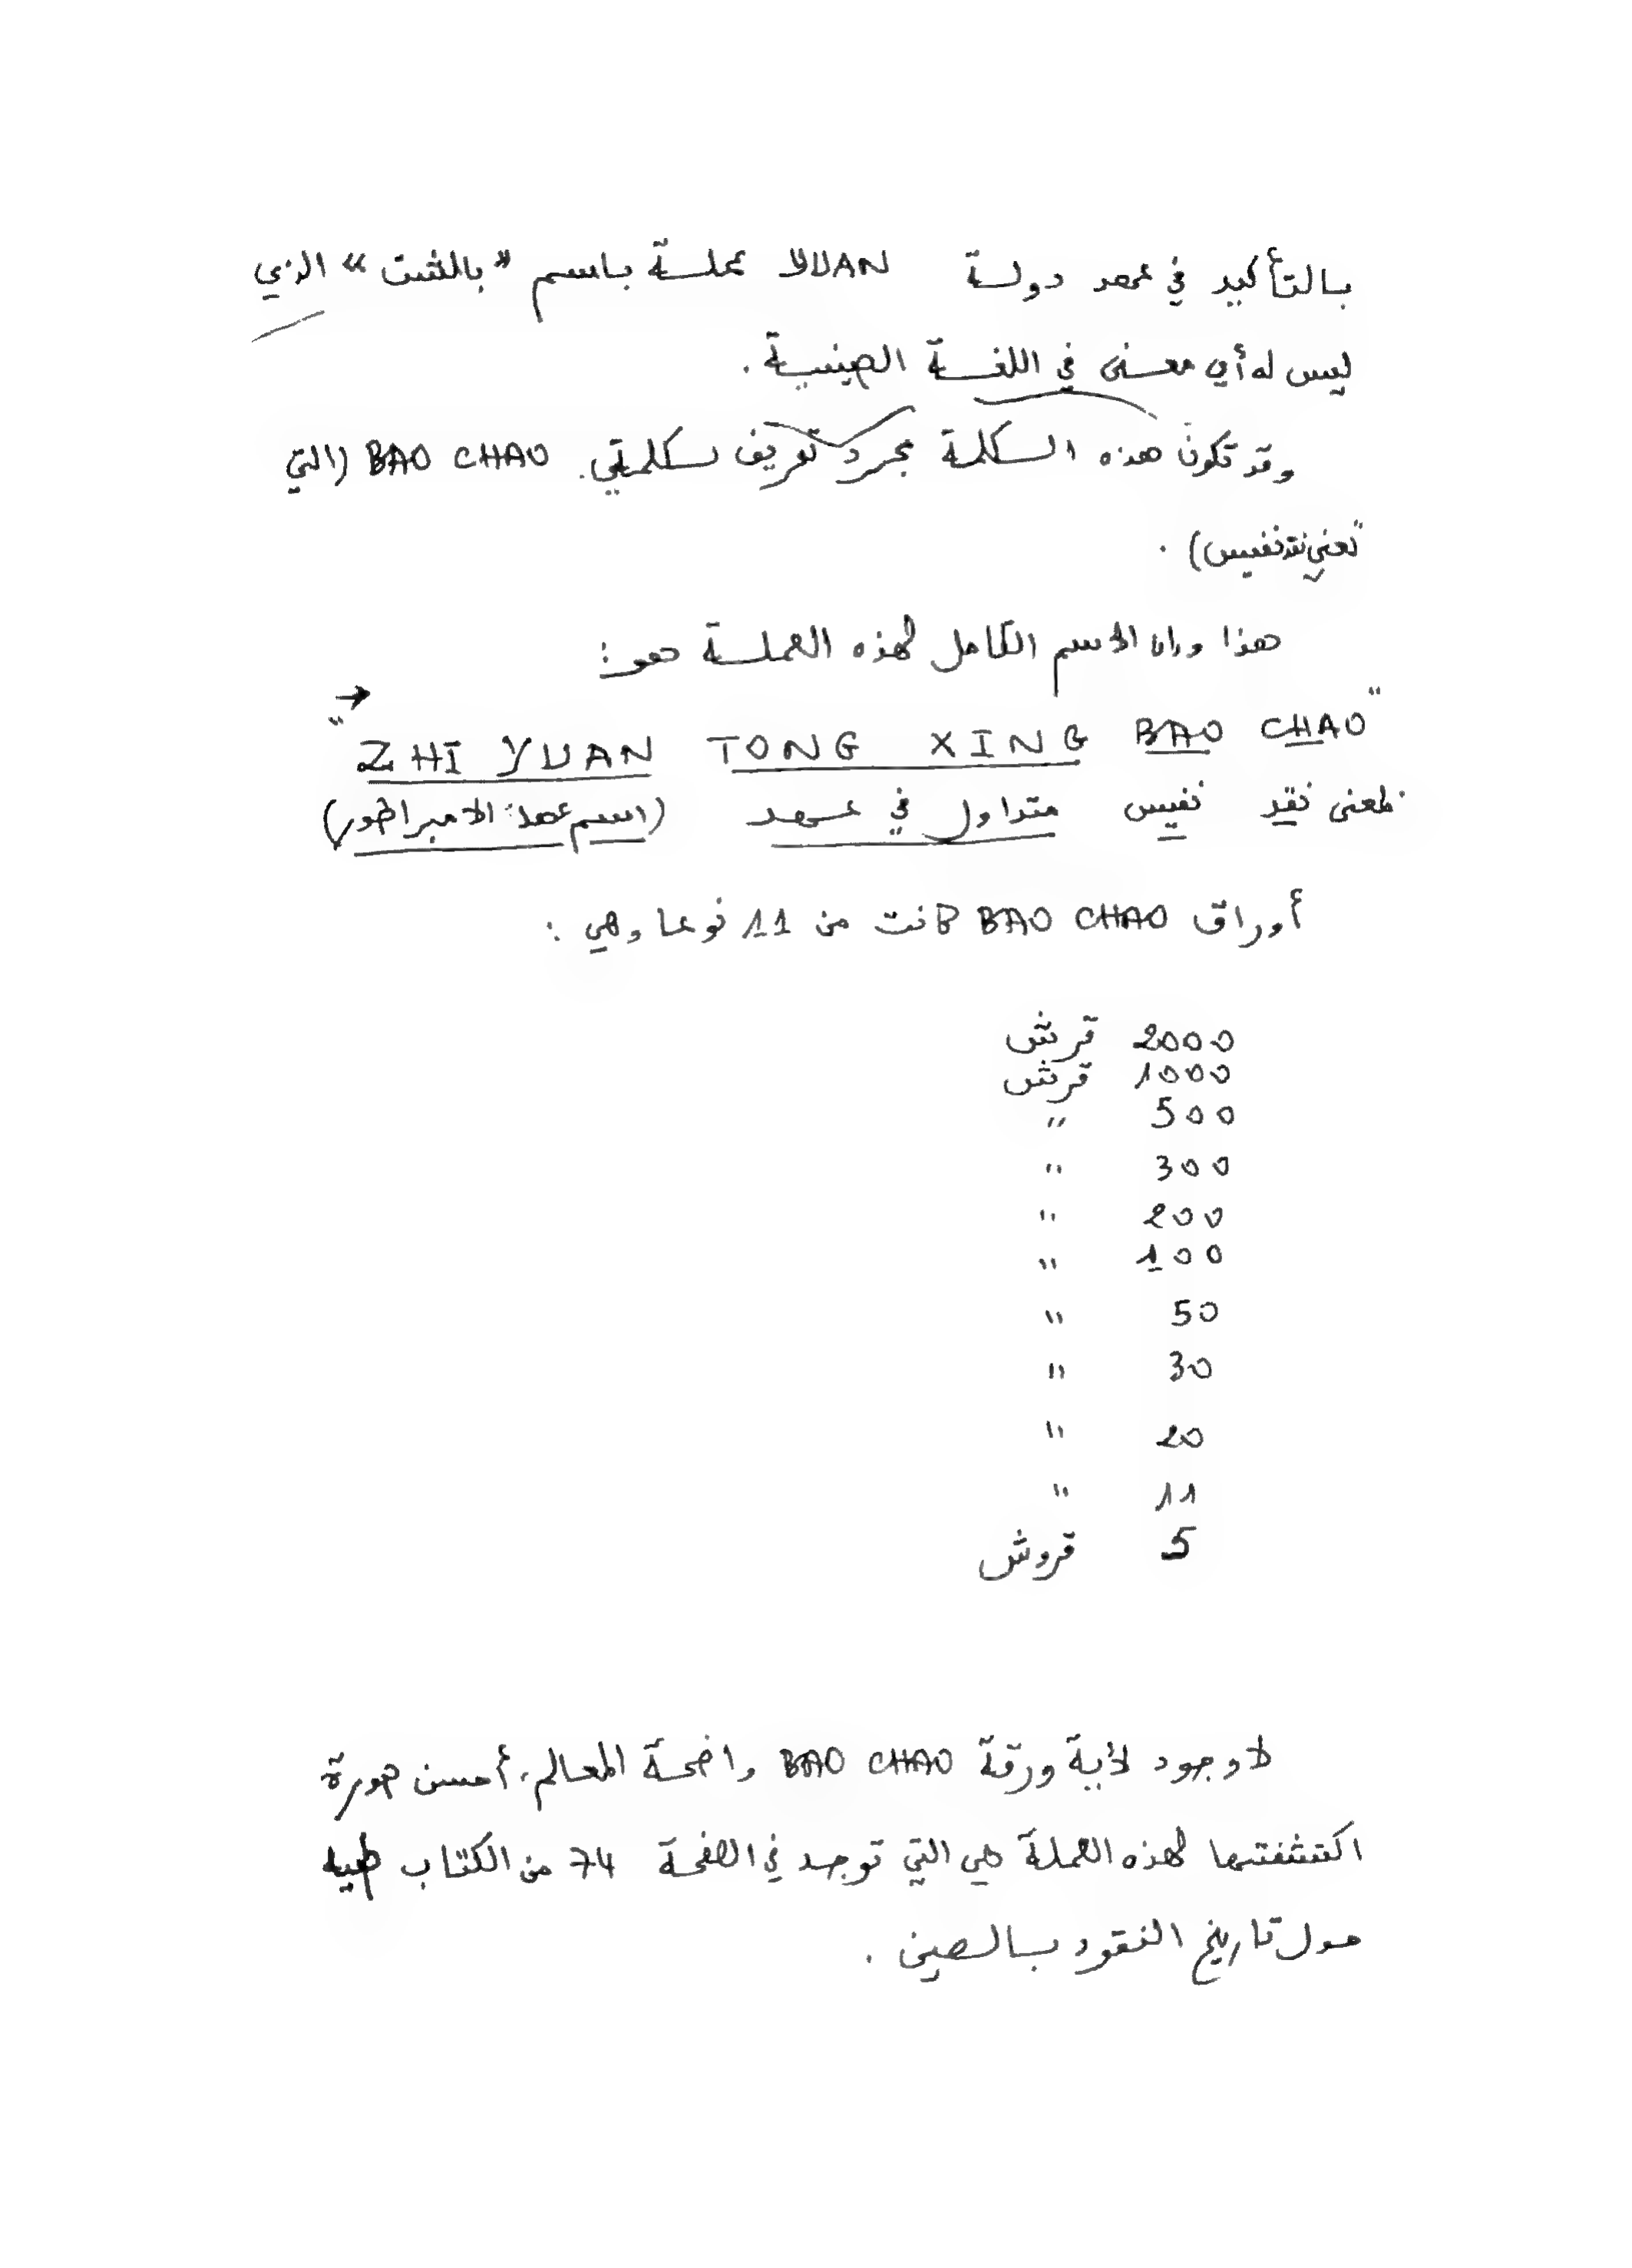 بالتأكيد في عهد دولة YUAN عملة باسم "بالشت" الذي
ليس له أي معنى في اللغة الصينية .
وقد تكون هذه الكلمة مجرد تعريف لكلمتي BAO CHAO (التي
تعني نقد نفيس) .
هذا وان الاسم الكامل لهذه العملة هو :
→
"ZHI YUAN TONG XING BAO CHAO"
بمعنى نقد نفيس متداول في عهد (اسم عهد الامبراطور)
أوراق BAO CHAO كانت من 11 نوعا وهي :
2000 قرش
1000 قرش
500 "
300 "
200 "
100 "
50 "
30 "
20 "
11 "
5 قروش
لا وجود لأية ورقة BAO CHAO واضحة المعالم، أحسن صورة
اكتشفتها لهذه العملة هي التي توجد في الصفحة 74 من الكتاب
حول تاريخ النقود بالصين .